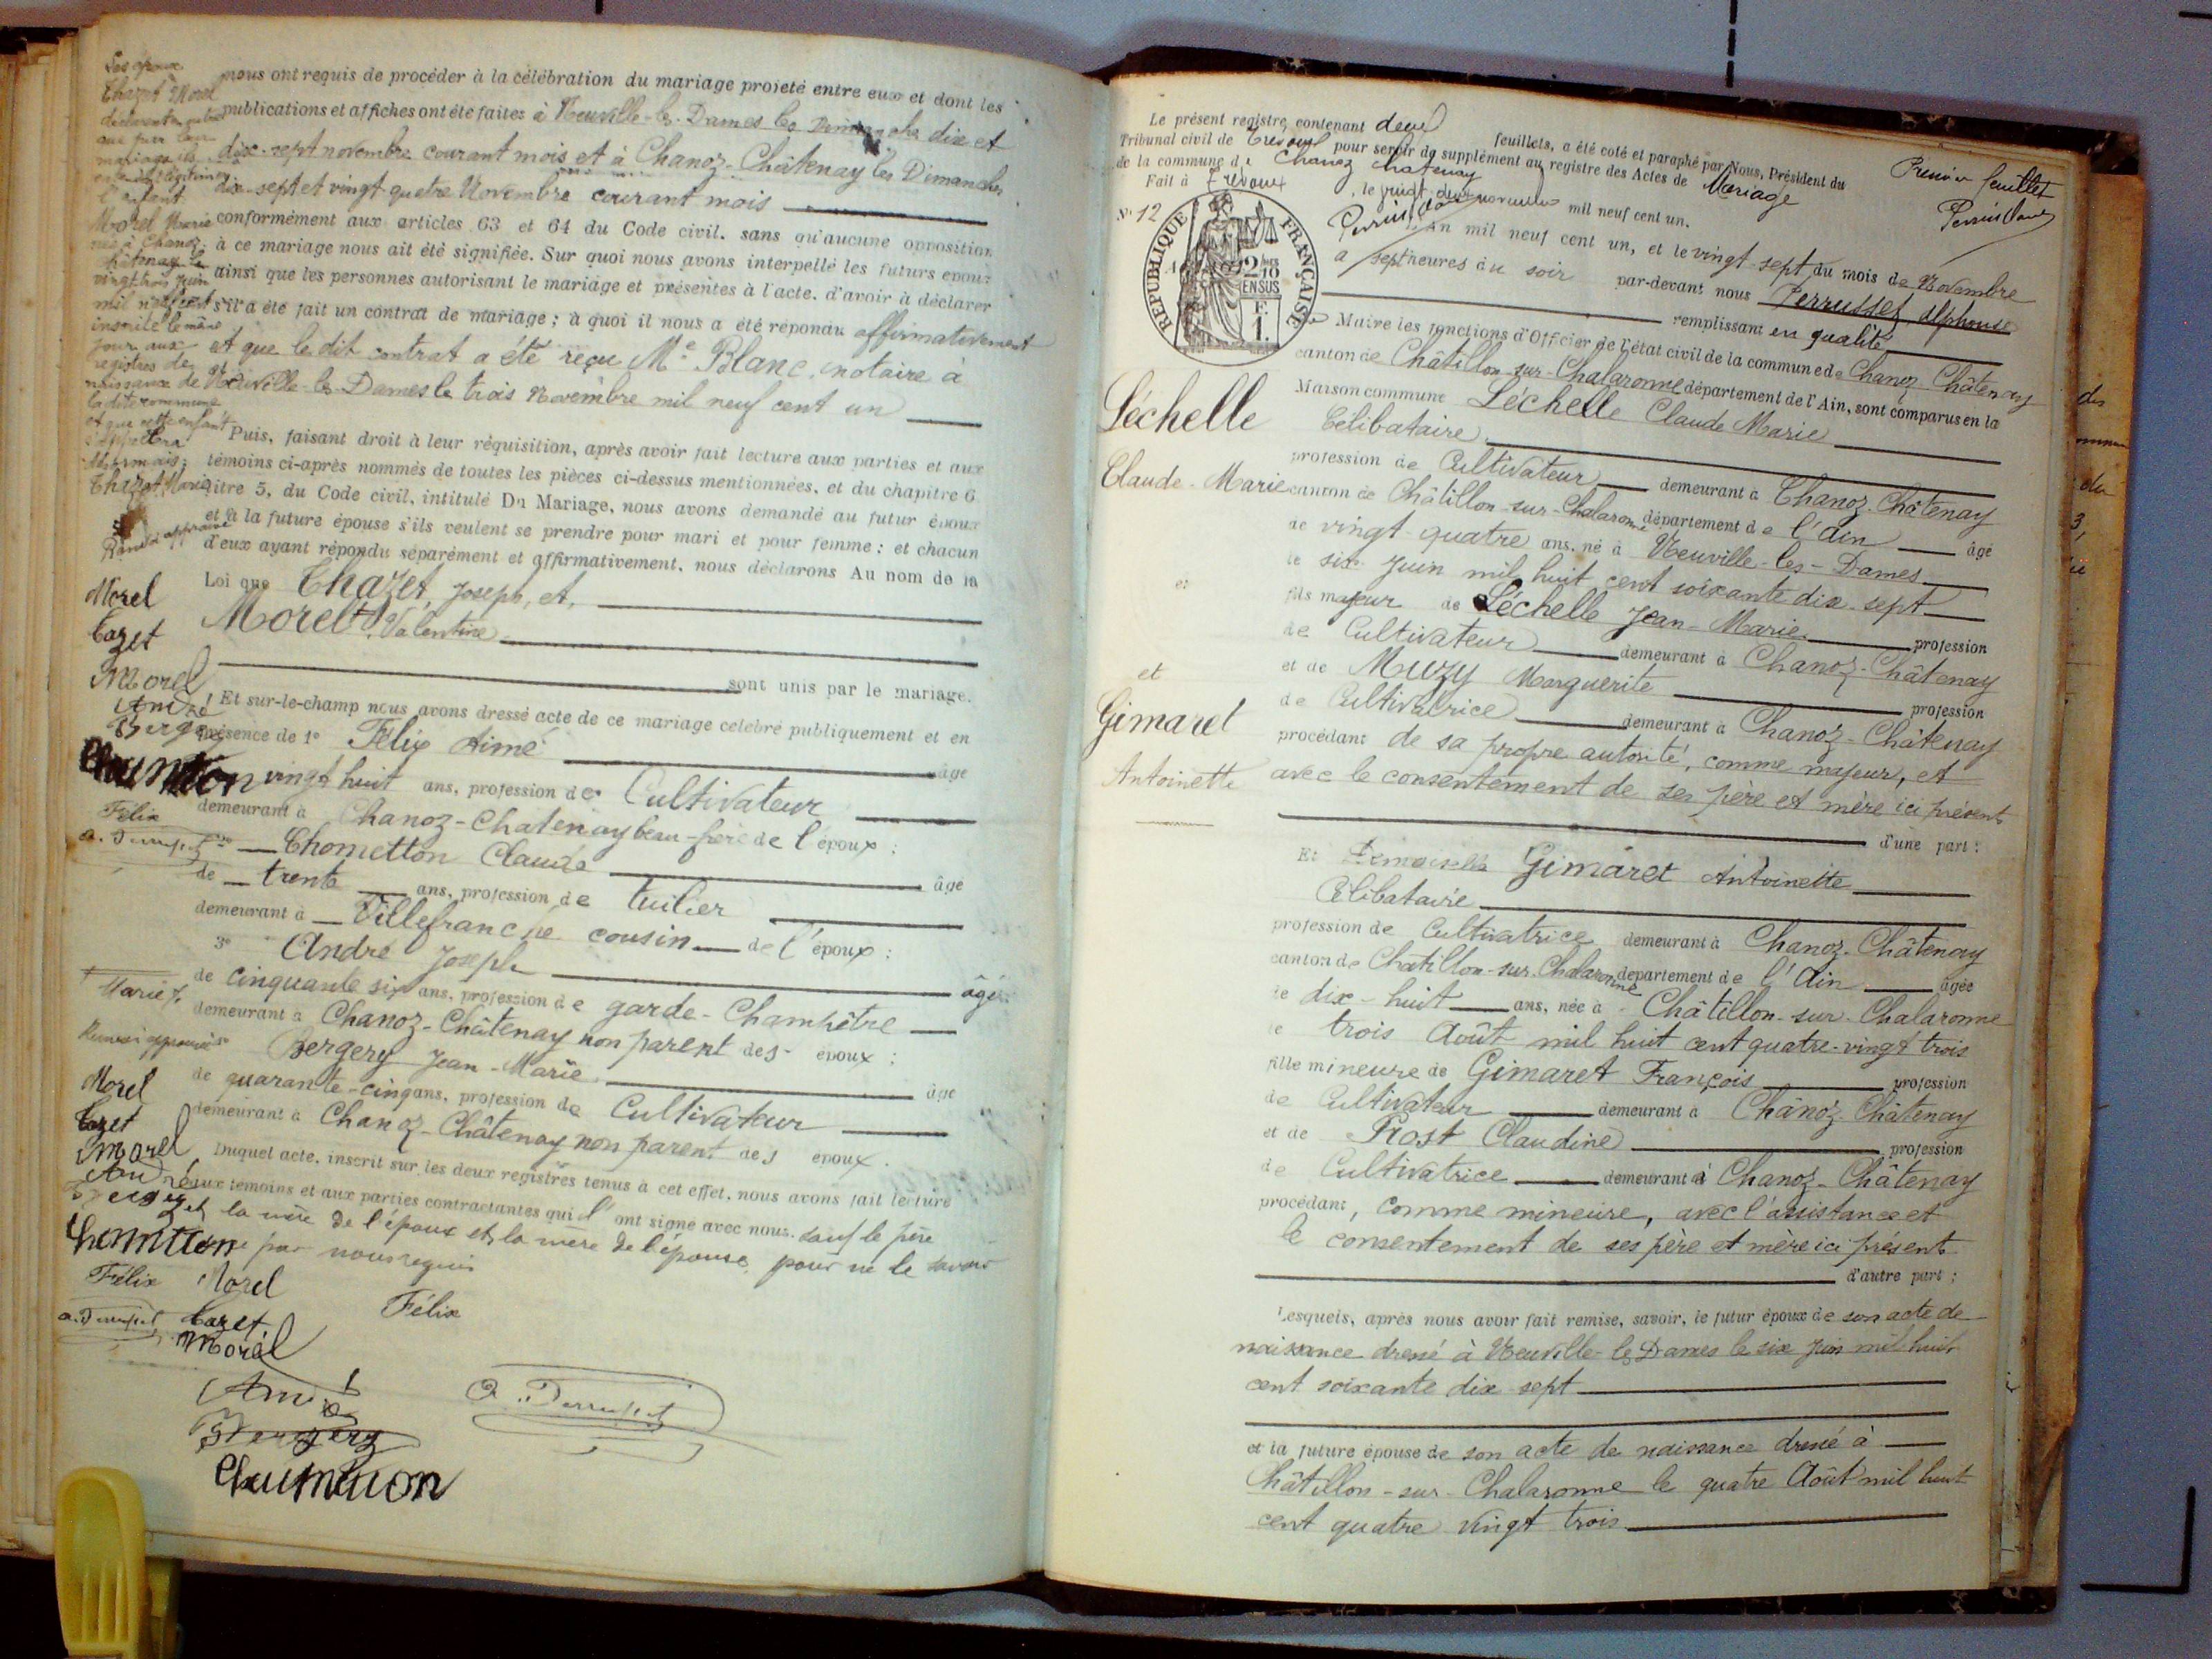 Les époux
Chazet & Morel
déclarent en outre
que par leur
mariage ils
légitimer
l'enfant
Morel Marie
née à Chanoz-
Châtenay le
vingt trois juin
mil neuf cent
inscrite le même
jour aux
registres de
naissance de
ladite commune
et que cette enfant
s'appellera
désormais:
Chazet Marie
approuvé
Morel
Cazet
Morel
André
Bergery
Félix
Marie
approuvé
Morel
Cazet
Morel
André
Félix
nous ont requis de procéder à la célébration du mariage projeté entre eux et dont les
publications et affiches ont été faites à Neuville-les-Dames les Dimanche dix et
dix-sept novembre courant mois et à Chanoz-Châtenay les Dimanches
dix-sept et vingt quatre Novembre courant mois
conformément aux articles 63 et 64 du Code civil. sans qu'aucune opposition
à ce mariage nous ait été signifiée. Sur quoi nous avons interpellé les futurs époux
ainsi que les personnes autorisant le mariage et présentes à l'acte. d'avoir à déclarer
s'il a été fait un contrat de mariage; à quoi il nous a été répondu affirmativement
et que le dit contrat a été reçu Me Blanc, notaire à
Neuville-les-Dames le trois Novembre mil neuf cent un
Puis, faisant droit à leur réquisition, après avoir fait lecture aux parties et aux
témoins ci-après nommés de toutes les pièces ci-dessus mentionnées, et du chapitre 6
titre 5, du Code civil, intitulé Du Mariage, nous avons demandé au futur époux
et à la future épouse s'ils veulent se prendre pour mari et pour femme; et chacun
d'eux ayant répondu séparément et affirmativement, nous déclarons Au nom de la
Loi que Chazet, Joseph, et,
Morel, Valentine
sont unis par le mariage.
Et sur-le-champ nous avons dressé acte de ce mariage célébré publiquement et en
présence de 1° Félix Aimé âgé
vingt huit ans, profession de Cultivateur
demeurant à Chanoz-Chatenay beau-frère de l'époux;
Chometton Claude âgé
de trente ans, profession de tuilier
demeurant à Villefranche cousin de l'époux;
3° André Joseph âgé
de cinquante six ans, profession de garde-Champêtre
demeurant à Chanoz-Châtenay non parent des époux;
Bergery Jean-Marie âgé
de quarante-cinq ans, profession de Cultivateur
demeurant à Chanoz-Châtenay non parent des époux.
Duquel acte, inscrit sur les deux registres tenus à cet effet, nous avons fait lecture
aux témoins et aux parties contractantes qui l'ont signé avec nous. sauf le père
et la mère de l'époux et la mère de l'épouse pour ne le savoir
par nous requis
Morel
Félix
Cazet
Morel
André
Bergery
A. Perrusset
Le présent registre, contenant deux feuillets, a été coté et paraphé par Nous, Président du
Tribunal civil de Trévoux pour servir de supplément au registre des Actes de Mariage
de la commune de Chanoz Chatenay
Fait à Trévoux, le vingt deux novembre mil neuf cent un.
Premier feuillet
N° 12
RÉPUBLIQUE FRANÇAISE
2/10 EN SUS
F.
1.
L'an mil neuf cent un, et le vingt-sept du mois de Novembre
à sept heures du soir par-devant nous Perrusset, Alphonse
remplissant en qualité
de Maire les fonctions d'Officier de l'état civil de la commune de Chanoz-Châtenay
canton de Châtillon-sur-Chalaronne département de l'Ain, sont comparus en la
Maison commune Léchelle Claude Marie
Célibataire
profession de Cultivateur demeurant à Chanoz-Châtenay
canton de Châtillon-sur-Chalaronne département de l'Ain âgé
de vingt-quatre ans, né à Neuville-les-Dames
le six Juin mil huit cent soixante dix-sept
fils majeur de Léchelle Jean-Marie profession
de Cultivateur demeurant à Chanoz-Châtenay
et de Muzy Marguerite profession
de Cultivatrice demeurant à Chanoz-Châtenay
procédant de sa propre autorité, comme majeur, et
avec le consentement de ses père et mère ici présents
d'une part;
Et Demoiselle Gimaret Antoinette
Célibataire
profession de Cultivatrice demeurant à Chanoz-Châtenay
canton de Chatillon-sur-Chalaronne département de l'Ain âgée
de dix-huit ans, née à Châtillon-sur-Chalaronne
le trois Août mil huit cent quatre-vingt trois
fille mineure de Gimaret François profession
de Cultivateur demeurant à Chanoz-Châtenay
et de Prost Claudine profession
de Cultivatrice demeurant à Chanoz-Châtenay
procédant, comme mineure, avec l'assistance et
le consentement de ses père et mère ici présents
d'autre part;
Lesquels, après nous avoir fait remise, savoir, le futur époux de son acte de
naissance dressé à Neuville-les-Dames le six Juin mil huit
cent soixante dix-sept
et la future épouse de son acte de naissance dressé à
Châtillon-sur-Chalaronne le quatre Août mil huit
cent quatre vingt trois
Léchelle
Claude-Marie
et
et
Gimaret
Antoinette